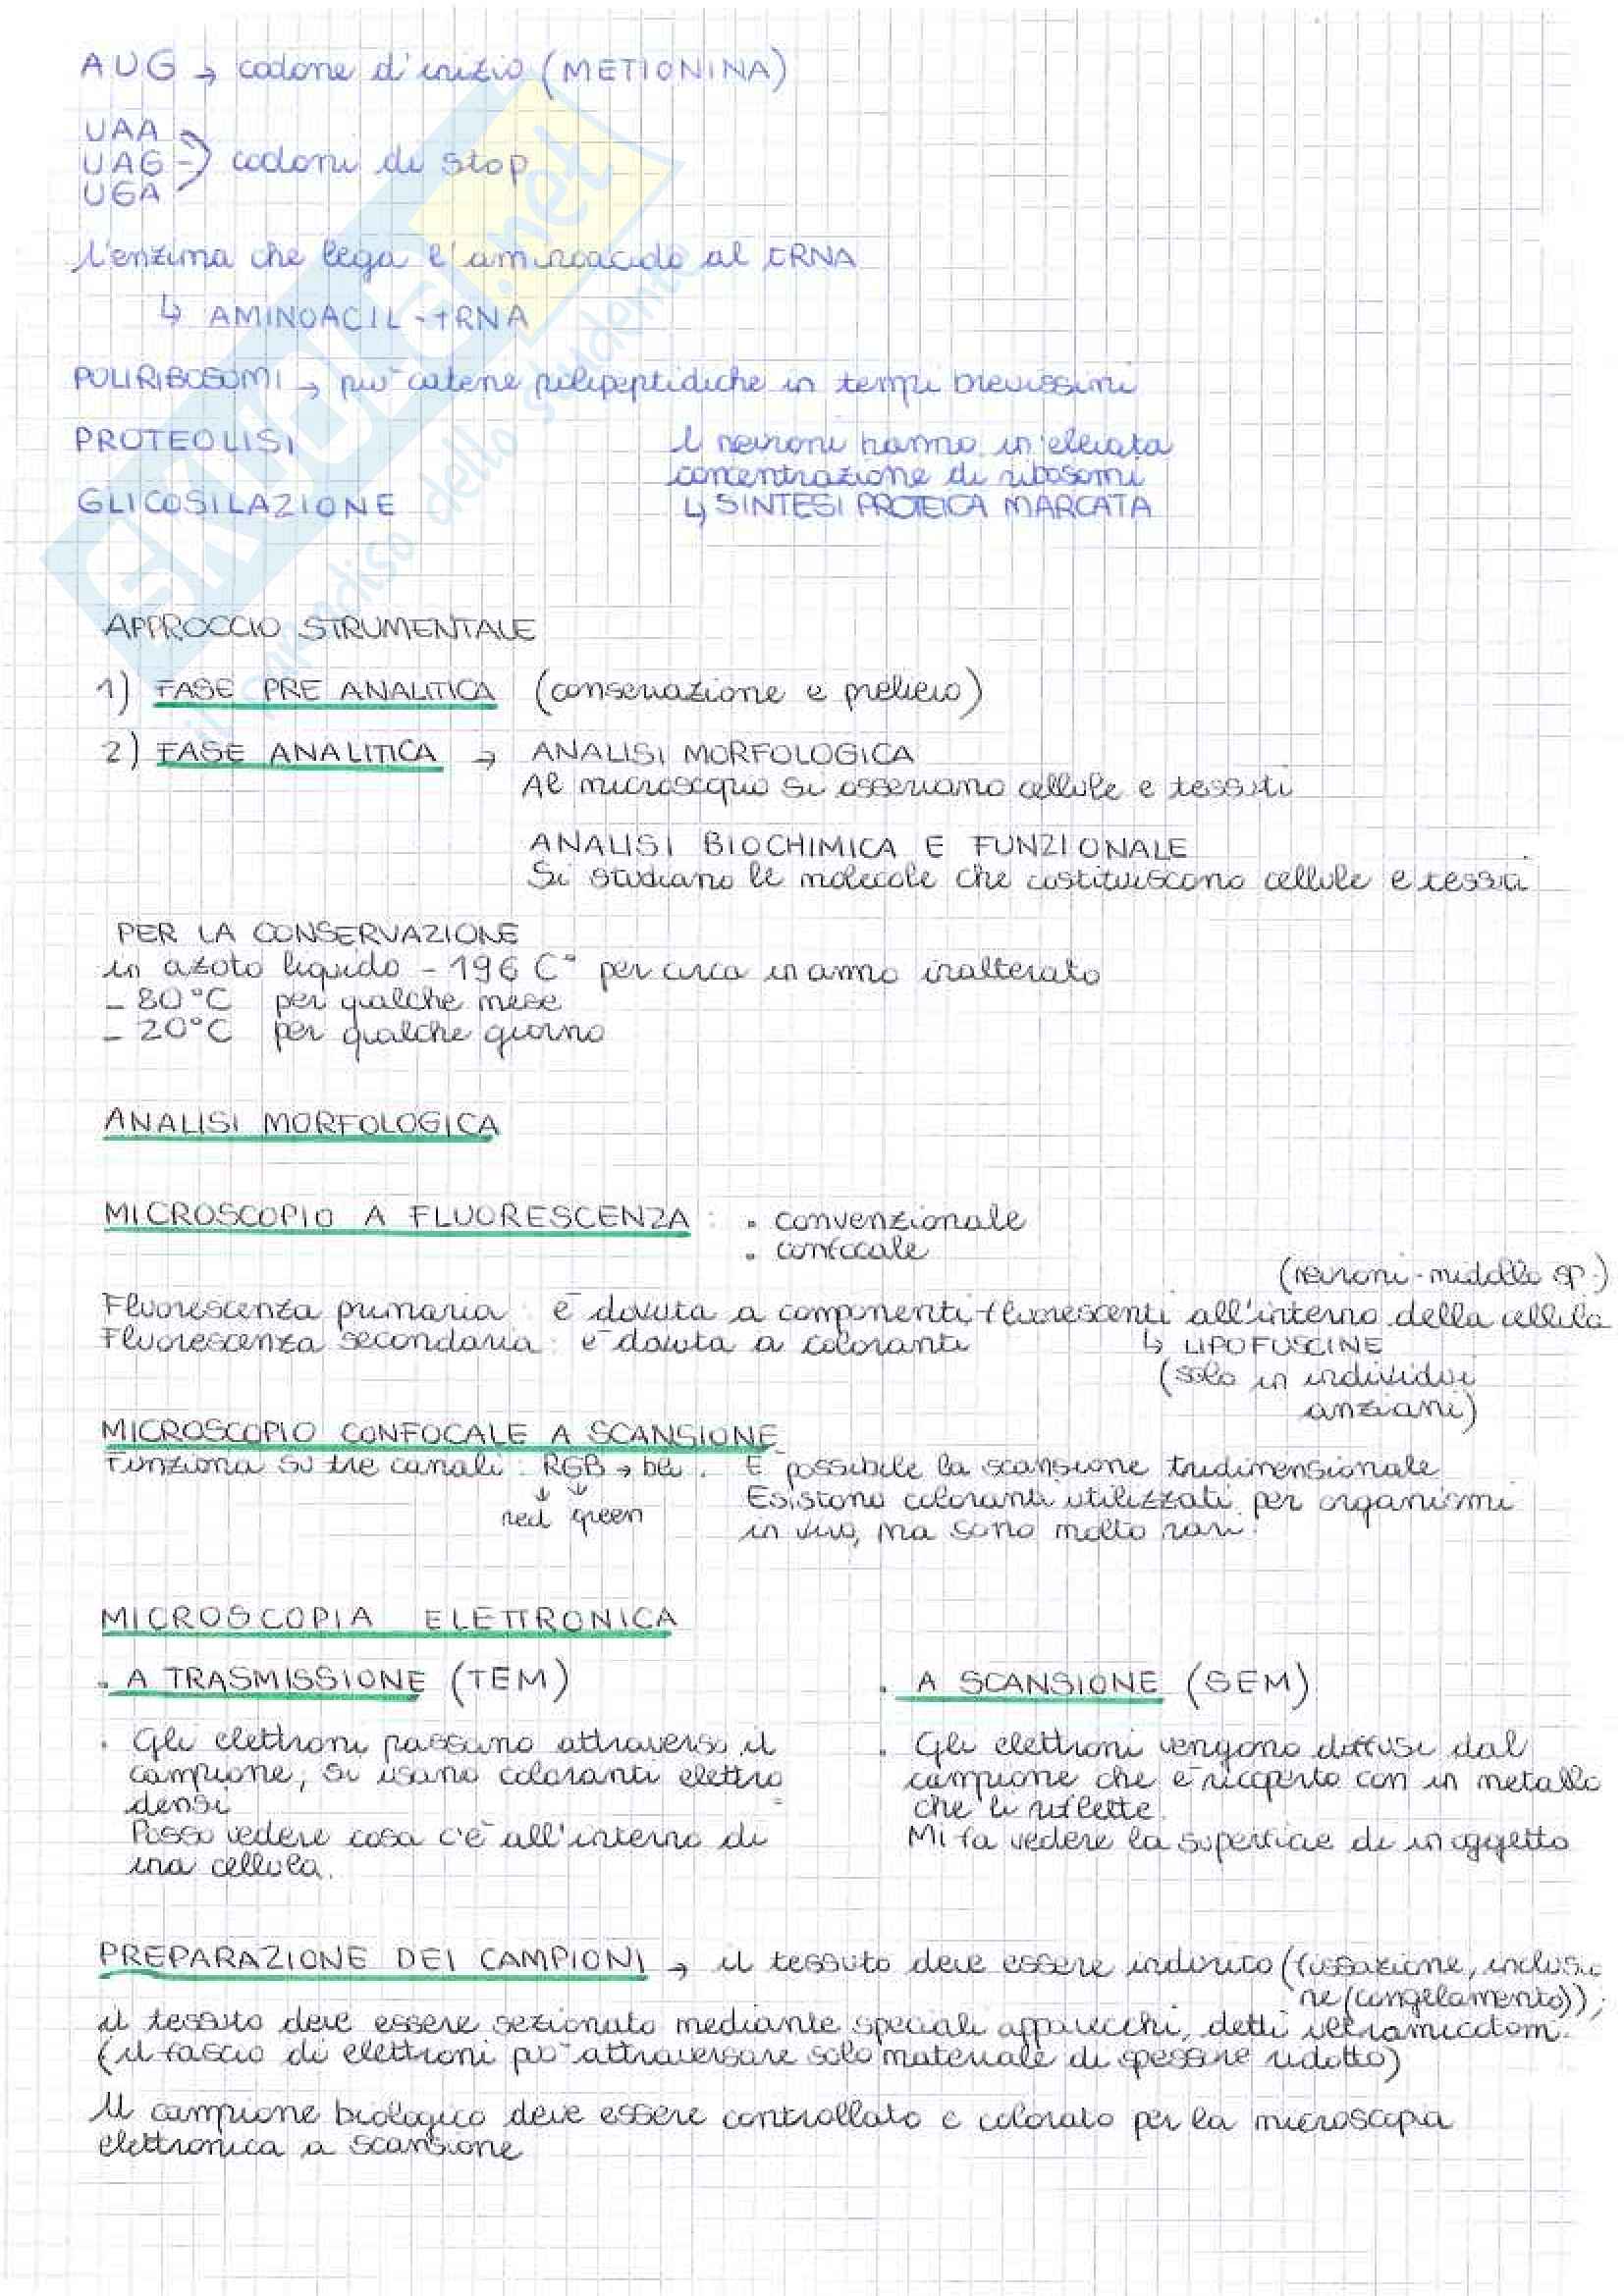 AUG → codone d'inizio (METIONINA)
UAA
UAG → codoni di stop
UGA
L'enzima che lega l'aminoacido al tRNA
↳ AMINOACIL-tRNA
POLIRIBOSOMI → più catene polipeptidiche in tempi brevissimi
PROTEOLISI
GLICOSILAZIONE
I neuroni hanno un'elevata
concentrazione di ribosomi
↳ SINTESI PROTEICA MARCATA
APPROCCIO STRUMENTALE
1) FASE PRE ANALITICA (conservazione e prelievo)
2) FASE ANALITICA → ANALISI MORFOLOGICA
Al microscopio si osservano cellule e tessuti
ANALISI BIOCHIMICA E FUNZIONALE
Si studiano le molecole che costituiscono cellule e tessuti
PER LA CONSERVAZIONE
in azoto liquido -196 C° per circa un anno inalterato
- 80°C per qualche mese
- 20°C per qualche giorno
ANALISI MORFOLOGICA
MICROSCOPIO A FLUORESCENZA : • convenzionale
• confocale
(neuroni-midollo sp.)
Fluorescenza primaria : è dovuta a componenti fluorescenti all'interno della cellula
Fluorescenza secondaria : è dovuta a coloranti ↳ LIPOFUSCINE
(solo in individui
anziani)
MICROSCOPIO CONFOCALE A SCANSIONE
Funziona su tre canali : RGB → blu . È possibile la scansione tridimensionale
↓ ↓
red green
Esistono coloranti utilizzati per organismi
in vivo, ma sono molto rari.
MICROSCOPIA ELETTRONICA
• A TRASMISSIONE (TEM)
• Gli elettroni passano attraverso il
campione, si usano coloranti elettro
densi
Posso vedere cosa c'è all'interno di
una cellula.
• A SCANSIONE (SEM)
• Gli elettroni vengono diffusi dal
campione che è ricoperto con un metallo
che li riflette.
Mi fa vedere la superficie di un oggetto
PREPARAZIONE DEI CAMPIONI → il tessuto deve essere indurito (fissazione, inclusio
ne (congelamento));
il tessuto deve essere sezionato mediante speciali apparecchi, detti ultramicotomi.
(il fascio di elettroni può attraversare solo materiale di spessore ridotto)
Il campione biologico deve essere controllato e colorato per la microscopia
elettronica a scansione
SKUOLA.net
il paradiso dello studente